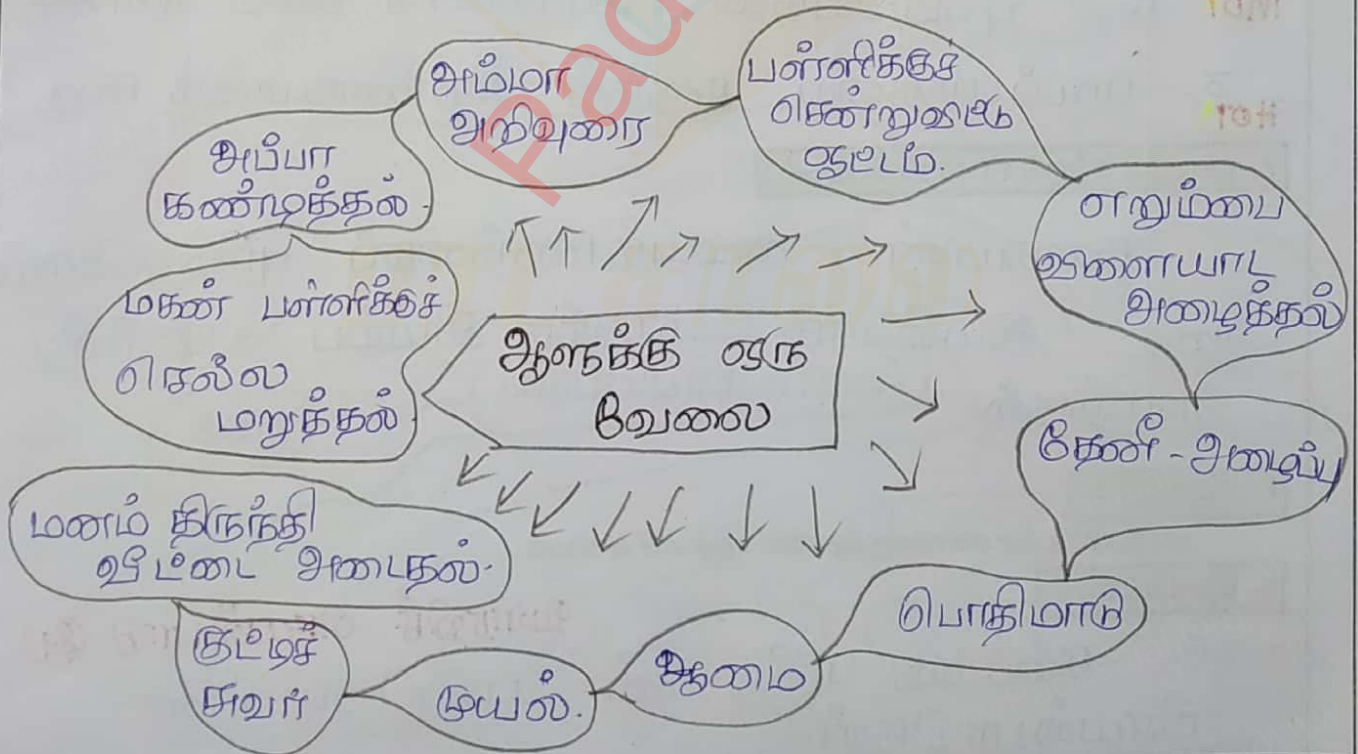 ஆளுக்கு ஒரு
வேலை
மகன் பள்ளிக்குச்
செல்ல
மறுத்தல்
அப்பா
கண்டித்தல்.
அம்மா
அறிவுரை
பள்ளிக்குச்
சென்றுவிட்டு
ஓட்டம்.
எறும்பை
விளையாட
அழைத்தல்
தேனீ - அழைப்பு
பொதிமாடு
ஆமை
முயல்.
குட்டிச்
சுவர்
மனம் திருந்தி
வீட்டை அடைதல்.
Pad